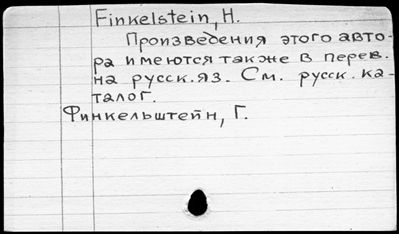 Finkelstein, H.
Произведения этого авто-
ра имеются также в перев.
на русск. яз. См. русск. ка-
талог.
Финкельштейн, Г.